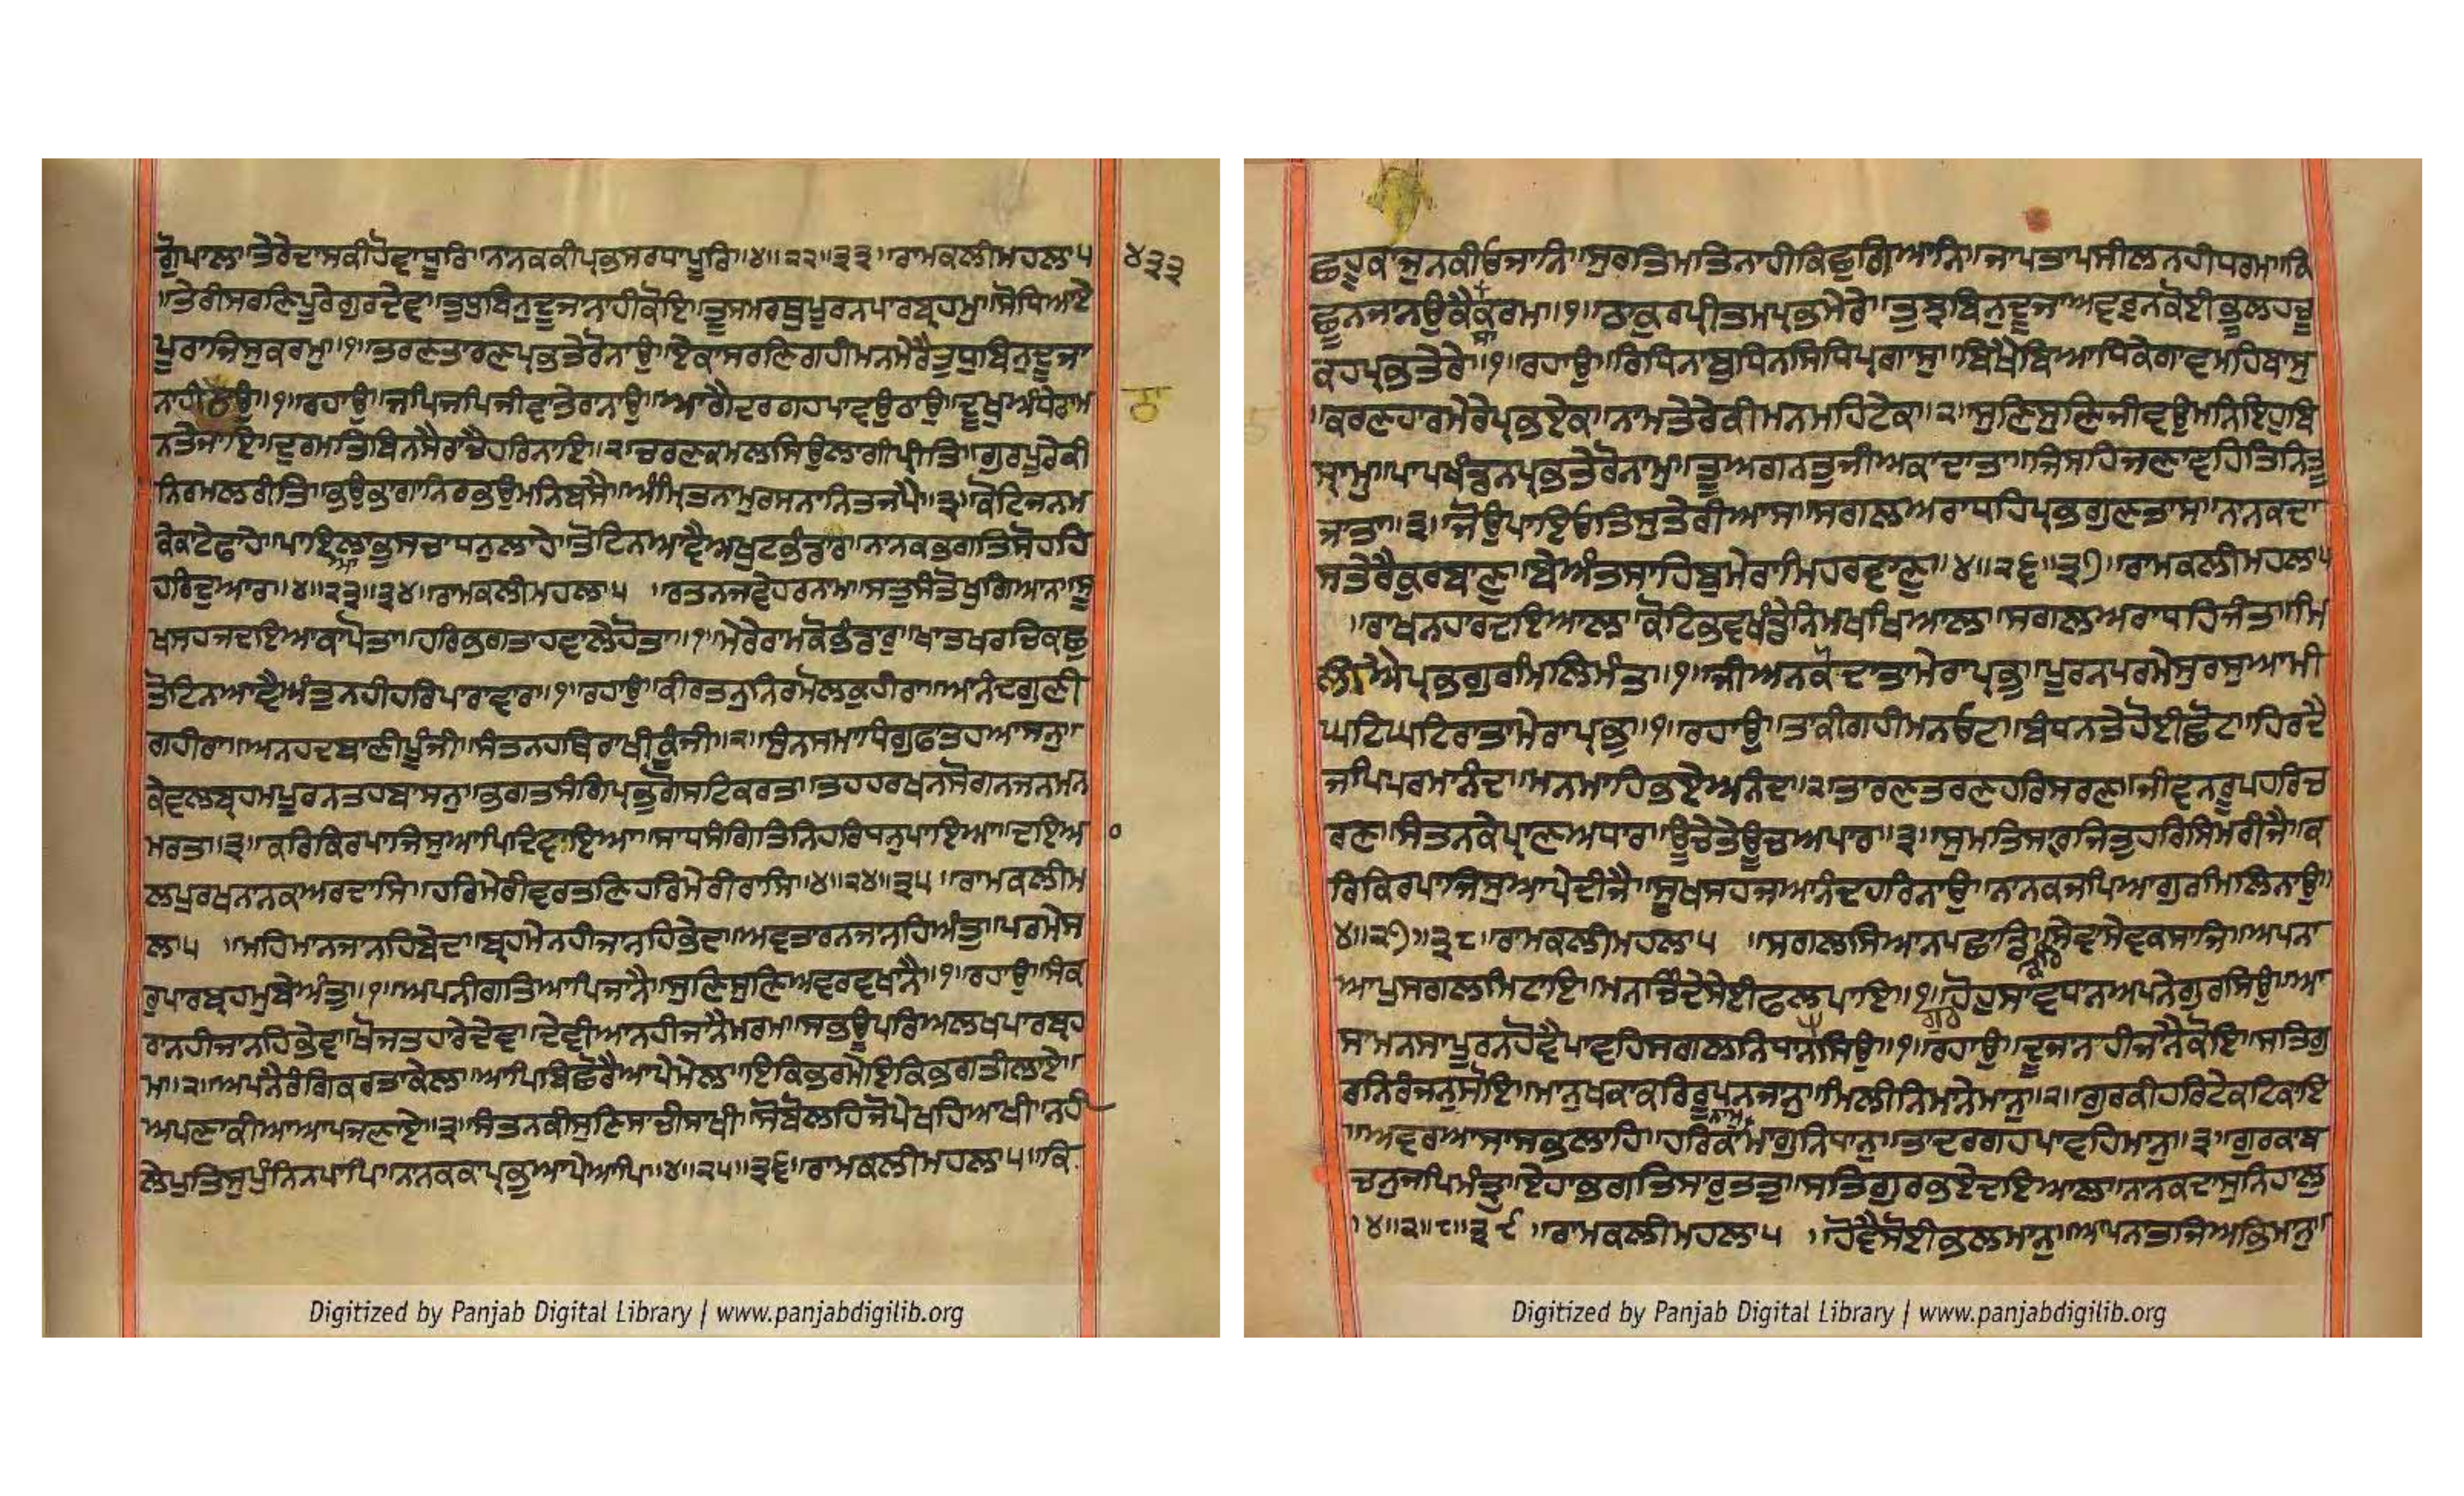 ਗੋਪਾਲਾ॥ਤੇਰੇਦਾਸਕੀਹੋਵਾਧੂਰਿ॥ਨਾਨਕਕੀਪ੍ਰਭਸਰਧਾਪੂਰਿ॥੪॥੨੨॥੩੩॥ਰਾਮਕਲੀਮਹਲਾ੫ ੪੩੩
॥ਤੇਰੀਸਰਣਿਪੂਰੇਗੁਰਦੇਵ॥ਤੁਧੁਬਿਨੁਦੂਜਾਨਾਹੀਕੋਇ॥ਤੂਸਮਰਥੁਪੂਰਨਪਾਰਬ੍ਰਹਮੁ॥ਸੋਧਿਆਏ
ਪੂਰਾਜਿਸੁਕਰਮੁ॥੧॥ਤਰਣਤਾਰਣਪ੍ਰਭਤੇਰੋਨਾਉ॥ਏਕਾਸਰਣਿਗਹੀਮਨਮੇਰੈਤੁਧੁਬਿਨੁਦੂਜਾ
ਨਾਹੀਠਾਉ॥੧॥ਰਹਾਉ॥ਜਪਿਜਪਿਜੀਵਾਤੇਰਾਨਾਉ॥ਆਗੈਦਰਗਹਪਾਵਉਠਾਉ॥ਦੂਖੁਅੰਧੇਰਾਮ
ਨਤੇਜਾਇ॥ਦੁਰਮਤਿਬਿਨਸੈਰਾਚੈਹਰਿਨਾਇ॥੨॥ਚਰਣਕਮਲਸਿਉਲਾਗੀਪ੍ਰੀਤਿ॥ਗੁਰਪੂਰੇਕੀ
ਨਿਰਮਲਰੀਤਿ॥ਭਉਭਾਗਾਨਿਰਭਉਮਨਿਬਸੈ॥ਅੰਮ੍ਰਿਤਨਾਮੁਰਸਨਾਨਿਤਜਪੈ॥੩॥ਕੋਟਿਜਨਮ
ਕੇਕਾਟੇਫਾਹੇ॥ਪਾਇਆਲਾਭੁਸਚਾਧਨੁਲਾਹੇ॥ਤੋਟਿਨਆਵੈਅਖੁਟਭੰਡਾਰ॥ਨਾਨਕਭਗਤਿਸੋਹਹਿ
ਹਰਿਦੁਆਰਾ॥੪॥੨੩॥੩੪॥ਰਾਮਕਲੀਮਹਲਾ੫ ॥ਰਤਨਜਵੇਹਰਨਾਮ॥ਸਤੁਸੰਤੋਖੁਗਿਆਨ॥ਸੂ
ਖਸਹਜਦਇਆਕਾਪੋਤਾ॥ਹਰਿਭਗਤਾਹਵਾਲੈਹੋਤਾ॥੧॥ਮੇਰੇਰਾਮਕੋਭੰਡਾਰੁ॥ਖਾਤਖਰਚਿਕਛੁ
ਤੋਟਿਨਆਵੈਅੰਤੁਨਹੀਹਰਿਪਾਰਾਵਾਰ॥੧॥ਰਹਾਉ॥ਕੀਰਤਨੁਨਿਰਮੋਲਕੁਹੀਰਾ॥ਆਨੰਦਗੁਣੀ
ਗਹੀਰਾ॥ਅਨਹਦਬਾਣੀਪੂੰਜੀ॥ਸੰਤਨਹਥਿਰਾਖੀਕੂੰਜੀ॥੨॥ਸੁੰਨਸਮਾਧਿਗੁਫਤਹਆਸਨੁ॥
ਕੇਵਲਬ੍ਰਹਮਪੂਰਨਤਹਬਾਸਨੁ॥ਭਗਤਸੰਗਿਪ੍ਰਭੁਗੋਸਟਿਕਰਤਾ॥ਤਹਹਰਖਨਸੋਗਨਜਨਮਨ
ਮਰਤਾ॥੩॥ਕਰਿਕਿਰਪਾਜਿਸੁਆਪਿਦਿਵਾਇਆ॥ਸਾਧਸੰਗਿਤਿਨਿਹਰਿਧਨੁਪਾਇਆ॥ਦਇਆ
ਲਪੁਰਖਨਾਨਕਅਰਦਾਸਿ॥ਹਰਿਮੇਰੀਵਰਤਣਿਹਰਿਮੇਰੀਰਾਸਿ॥੪॥੨੪॥੩੫॥ਰਾਮਕਲੀਮ
ਲਾ੫ ॥ਮਹਿਮਾਨਜਾਨਹਿਬੇਦਾ॥ਬ੍ਰਹਮੇਨਹੀਜਾਨਹਿਭੇਦਾ॥ਅਵਤਾਰਨਜਾਨਹਿਅੰਤੁ॥ਪਰਮੇਸ
ਰੁਪਾਰਬ੍ਰਹਮੁਬੇਅੰਤੁ॥੧॥ਅਪਨੀਗਤਿਆਪਿਜਾਨੈ॥ਸੁਣਿਸੁਣਿਅਵਰਵਖਾਨੈ॥੧॥ਰਹਾਉ॥ਸੰਕ
ਰਾਨਹੀਜਾਨਹਿਭੇਵਾ॥ਖੋਜਤਹਾਰੇਦੇਵਾ॥ਦੇਵੀਆਨਹੀਜਾਨੈਮਰਮਾ॥ਸਭਊਪਰਿਅਲਖਪਾਰਬ੍ਰਹ
ਮਾ॥੨॥ਅਪਨੈਰੰਗਿਕਰਤਾਕੇਲਾ॥ਆਪਿਬਿਛੋਰੈਆਪੇਮੇਲਾ॥ਇਕਿਭਰਮੇਇਕਿਭਗਤੀਲਾਏ॥
ਅਪਣਾਕੀਆਆਪਿਜਣਾਏ॥੩॥ਸੰਤਨਕੀਸੁਣਿਸਾਚੀਸਾਖੀ॥ਸੋਬੋਲਹਿਜੋਪੇਖਹਿਆਖੀ॥ਨਹੀ
ਲੇਪੁਤਿਸੁਪੁੰਨਿਨਪਾਪਿ॥ਨਾਨਕਕਾਪ੍ਰਭੁਆਪੇਆਪਿ॥੪॥੨੫॥੩੬॥ਰਾਮਕਲੀਮਹਲਾ੫॥ਕਿ
Digitized by Panjab Digital Library | www.panjabdigilib.org
ਛਹੂਕਾਜੁਨਕੀਓਜਾਨਿ॥ਸੁਰਤਿਮਤਿਨਾਹੀਕਿਛੁਗਿਆਨਿ॥ਜਾਪਤਾਪਸੀਲਨਹੀਧਰਮ॥ਕਿ
ਛੂਨਜਾਨਉਕੈਸਾਕਰਮਾ॥੧॥ਠਾਕੁਰਪ੍ਰੀਤਮਪ੍ਰਭਮੇਰੇ॥ਤੁਝਬਿਨੁਦੂਜਾਅਵਰੁਨਕੋਈਭੂਲਹਚੂ
ਕਹਪ੍ਰਭਤੇਰੇ॥੧॥ਰਹਾਉ॥ਰਿਧਿਨਬੁਧਿਨਸਿਧਿਪ੍ਰਗਾਸੁ॥ਬਿਖੈਬਿਆਧਿਕੇਗਾਵਮਹਿਬਾਸੁ
॥ਕਰਣਹਾਰਮੇਰੇਪ੍ਰਭਏਕ॥ਨਾਮਤੇਰੇਕੀਮਨਮਹਿਟੇਕ॥੨॥ਸੁਣਿਸੁਣਿਜੀਵਉਮਨਿਇਹੁਬਿ
ਸ੍ਰਾਮੁ॥ਪਾਪਖੰਡਨਪ੍ਰਭਤੇਰੋਨਾਮੁ॥ਤੂਅਗਨਤੁਜੀਅਕਾਦਾਤਾ॥ਜਿਸਹਿਜਣਾਵਹਿਤਿਨਿਤੂ
ਜਾਤਾ॥੩॥ਜੋਉਪਾਇਓਤਿਸੁਤੇਰੀਆਸ॥ਸਗਲਅਰਾਧਹਿਪ੍ਰਭਗੁਣਤਾਸ॥ਨਾਨਕਦਾ
ਸਤੇਰੈਕੁਰਬਾਣੁ॥ਬੇਅੰਤਸਾਹਿਬੁਮੇਰਾਮਿਹਰਵਾਣੁ॥੪॥੨੬॥੩੭॥ਰਾਮਕਲੀਮਹਲਾ੫
॥ਰਾਖਨਹਾਰਦਇਆਲਾ॥ਕੋਟਿਭਵਖੰਡੇਨਿਮਖਖਿਆਲਾ॥ਸਗਲਅਰਾਧਹਿਜੰਤਾ॥ਮਿ
ਲੀਐਪ੍ਰਭਗੁਰਮਿਲਿਮੰਤਾ॥੧॥ਜੀਅਨਕੋਦਾਤਾਮੇਰਾਪ੍ਰਭੁ॥ਪੂਰਨਪਰਮੇਸੁਰਸੁਆਮੀ
ਘਟਿਘਟਿਰਾਤਾਮੇਰਾਪ੍ਰਭੁ॥੧॥ਰਹਾਉ॥ਤਾਕੀਗਹੀਮਨਓਟ॥ਬੰਧਨਤੇਹੋਈਛੋਟ॥ਹਿਰਦੈ
ਜਪਿਪਰਮਾਨੰਦਾ॥ਮਨਮਾਹਿਭਏਅਨੰਦਾ॥੨॥ਤਾਰਣਤਰਣਹਰਿਸਰਣਾ॥ਜੀਵਨਰੂਪਹਰਿਚ
ਰਣਾ॥ਸੰਤਨਕੇਪ੍ਰਾਣਅਧਾਰਾ॥ਊਚੇਤੇਊਚਅਪਾਰਾ॥੩॥ਸੁਮਤਿਸਾਰੁਜਿਤੁਹਰਿਸਿਮਰੀਜੈ॥ਕ
ਰਿਕਿਰਪਾਜਿਸੁਆਪੇਦੀਜੈ॥ਸੂਖਸਹਜਆਨੰਦਹਰਿਨਾਉ॥ਨਾਨਕਜਪਿਆਗੁਰਮਿਲਿਨਾਉ॥
੪॥੨੭॥੩੮॥ਰਾਮਕਲੀਮਹਲਾ੫ ॥ਸਗਲਸਿਆਨਪਛਾਡਿ॥ਕਰਿਸੇਵਾਸੇਵਕਸਾਜਿ॥ਅਪਨਾ
ਆਪੁਸਗਲਮਿਟਾਇ॥ਮਨਚਿੰਦੇਸੇਈਫਲਪਾਇ॥੧॥ਹੋਹੁਸਾਵਧਾਨਅਪਨੇਗੁਰਸਿਉ॥ਆ
ਸਾਮਨਸਾਪੂਰਨਹੋਵੈਪਾਵਹਿਸਗਲਨਿਧਾਨਗੁਰਸਿਉ॥੧॥ਰਹਾਉ॥ਦੂਜਾਨਹੀਜਾਨੈਕੋਇ॥ਸਤਿਗੁ
ਰਨਿਰੰਜਨੁਸੋਇ॥ਮਾਨੁਖਕਾਕਰਿਰੂਪੁਨਜਾਨੁ॥ਮਿਲੀਨਿਮਾਨੇਮਾਨੁ॥੨॥ਗੁਰਕੀਹਰਿਟੇਕਟਿਕਾਇ
॥ਅਵਰਆਸਾਸਭਲਾਹਿ॥ਹਰਿਕਾਨਾਮੁਮਾਗੁਨਿਧਾਨੁ॥ਤਾਦਰਗਹਪਾਵਹਿਮਾਨੁ॥੩॥ਗੁਰਕਾਬ
ਚਨੁਜਪਿਮੰਤੁ॥ਏਹਾਭਗਤਿਸਾਰੁਤਤੁ॥ਸਤਿਗੁਰਭਏਦਇਆਲ॥ਨਾਨਕਦਾਸੁਨਿਹਾਲੁ
॥੪॥੨॥੮॥੩੯॥ਰਾਮਕਲੀਮਹਲਾ੫ ॥ਹੋਵੈਸੋਈਭਲਮਾਨੁ॥ਆਪਨਾਤਜਿਅਭਿਮਾਨੁ॥
Digitized by Panjab Digital Library | www.panjabdigilib.org